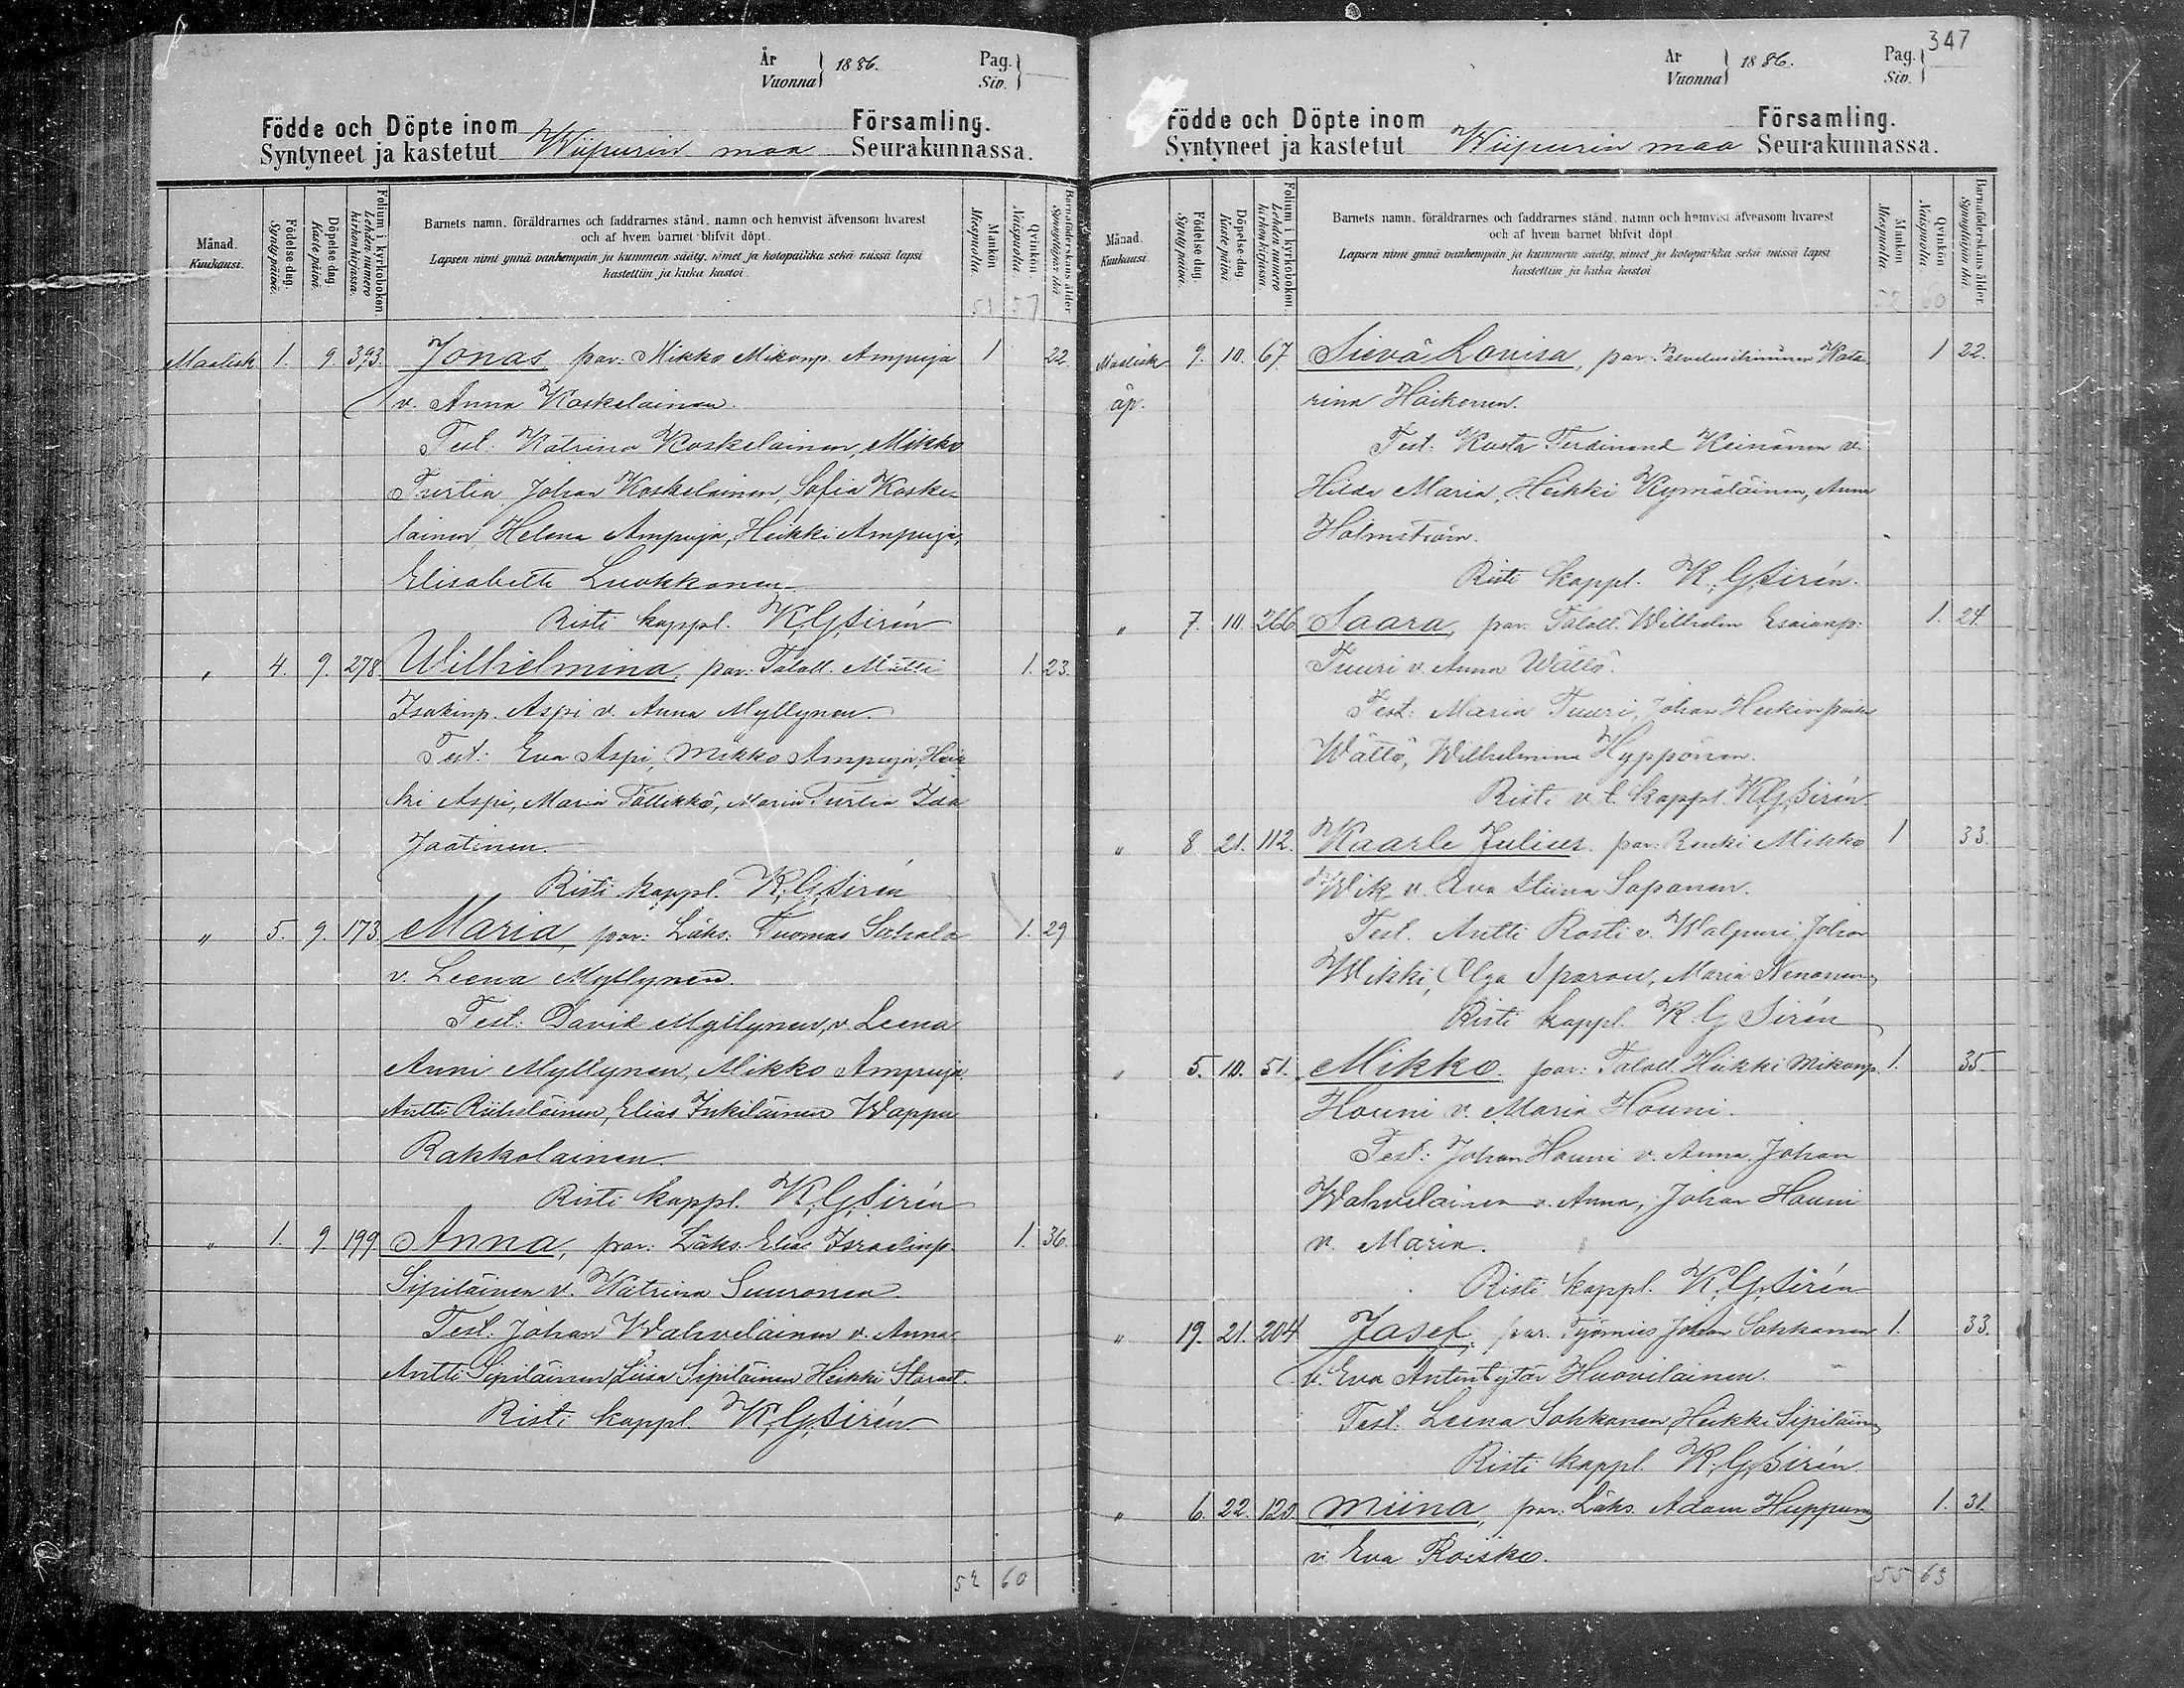 År
Vuonna } 1886.
Pag.
Siv.
Födde och Döpte inom
Syntyneet ja kastetut
Wiipurin maa
Församling.
Seurakunnassa.
Månad.
Kuukausi.
Födelse dag.
Synty päivä.
Döpelse dag.
Kaste päivä.
Folium i kyrkobokon.
Lehden numero kirkon kirjassa.
Barnets namn, föräldrarnes och faddrarnes stånd, namn och hemvist äfvensom hvarest
och af hvem barnet blifvit döpt.
Lapsen nimi ynnä vanhempain ja kummein sääty, nimet ja kotopaikka sekä missä lapsi
kastettiin ja kuka kastoi.
Mankön
Miespuolta.
Qvinkön
Naispuolta.
Barnaföderskans ålder.
Synnyttäjän ikä.
51 57
Maalisk. 1. 9. 393. Jonas, par: Mikko Mikonp. Ampuja 1 22.
v. Anna Koskelainen.
Test: Katrina Koskelainen, Mikko
Turtia, Johan Koskelainen, Sofia Koske-
lainen, Helena Ampuja, Heikki Ampuja,
Elisabeth Luokkanen
Risti kappl. K. G. Sirén
" 4. 9. 278. Wilhelmina, par: Taloll. Matti 1. 23.
Isakinp. Aspi v. Anna Myllynen.
Test: Eva Aspi, Mikko Ampuja, Heik
ki Aspi, Maria Tällikkö, Maria Turtia Ida
Jaatinen.
Risti kappl. K. G. Sirén
" 5. 9. 173. Maria, par: Läks: Tuomas Sahala 1. 29
v. Leena Myllynen.
Test: David Myllynen, v. Leena
Anni Myllynen, Mikko Ampuja.
Antti Riiheläinen, Elias Inkiläinen Wappu
Rakkolainen.
Risti kappl. K. G. Sirén
" 1. 9. 199. Anna, par: Läks. Elias Israelinp. 1. 36.
Sipiläinen v. Katrina Suuronen.
Test: Johan Wahveläinen v. Anna
Antti Sipiläinen Liisa Sipiläinen Heikki Starast.
Risti kappl. K. G. Sirén.
52 60
347
År
Vuonna } 1886.
Pag.
Siv.
Födde och Döpte inom
Syntyneet ja kastetut
Wiipurin maa
Församling.
Seurakunnassa.
Månad.
Kuukausi.
Födelse dag.
Synty päivä.
Döpelse dag.
Kaste päivä.
Folium i kyrkobokon.
Lehden numero kirkon kirjassa.
Barnets namn, föräldrarnes och faddrarnes stånd, namn och hemvist äfvensom hvarest
och af hvem barnet blifvit döpt.
Lapsen nimi ynnä vanhempain ja kummein sääty, nimet ja kotopaikka sekä missä lapsi
kastettiin ja kuka kastoi.
Mankön
Miespuolta.
Qvinkön
Naispuolta.
Barnaföderskans ålder.
Synnyttäjän ikä.
52 60
Maalisk 9. 10. 67. Sievä Lovisa, par: Kata- 1 22.
äp. rina Häikonen.
Test: Kusta Ferdinand Keinänen v.
Hilda Maria, Heikki Kymäläinen, Anna
Holmström.
Risti kappl. K. G. Sirén.
" 7. 10. 266. Saara, par: Taloll. Wilhelm Esaianp: 1. 24.
Tuuri v. Anna Wättö.
Test: Maria Tuuri, Johan Heikinpoika
Wättö, Wilhelmina Hyppönen.
Risti v. t. kappl. K. G. Sirén.
" 8 21. 112. Kaarle Julius. par: Renki Mikko 1 33.
Wik v. Eva Stiina Sapanen.
Test. Antti Rosti v. Walpuri Johan
Wikki, Olga Sparou, Maria Nenonen,
Risti kappl. K. G. Sirén
" 5. 10. 51. Mikko. par: Taloll. Heikki Mikonp. 1. 35
Houni v. Maria Houni.
Test: Johan Houni v. Anna, Johan
Wahveläinen v. Anna, Johan Houni
v. Maria.
Risti kappl. K. G. Sirén
" 19. 21. 204 Josef, par. Työmies Johan Sokkanen 1. 33.
v. Eva Antintytär Huovilainen.
Test. Leena Sokkanen, Heikki Sipiläinen
Risti kappl. K. G. Sirén.
" 6. 22. 120. Miina, par: Läks. Adam Huppunen 1. 31.
v. Eva Roisko.
55 63